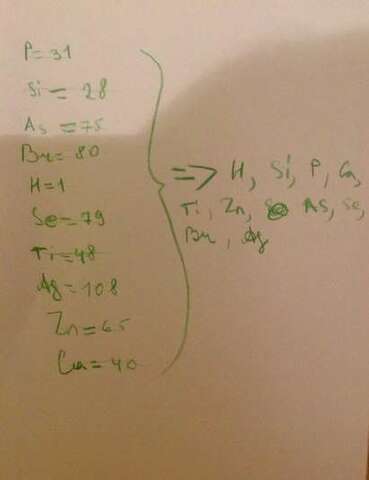 P=31
Si=28
As=75
Br=80
H=1
Se=79
Ti=48
Ag=108
Zn=65
Ca=40
=> H, Si, P, Ca,
Ti, Zn, As, Se,
Br, Ag